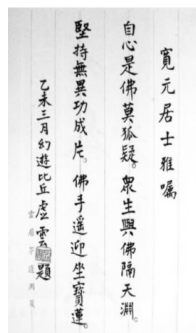 寬元居士雅囑
自心是佛莫狐疑。眾生與佛隔天淵。
堅持無異功成片。佛手遥迎坐寶蓮。
乙未三月幻遊比丘虛雲題